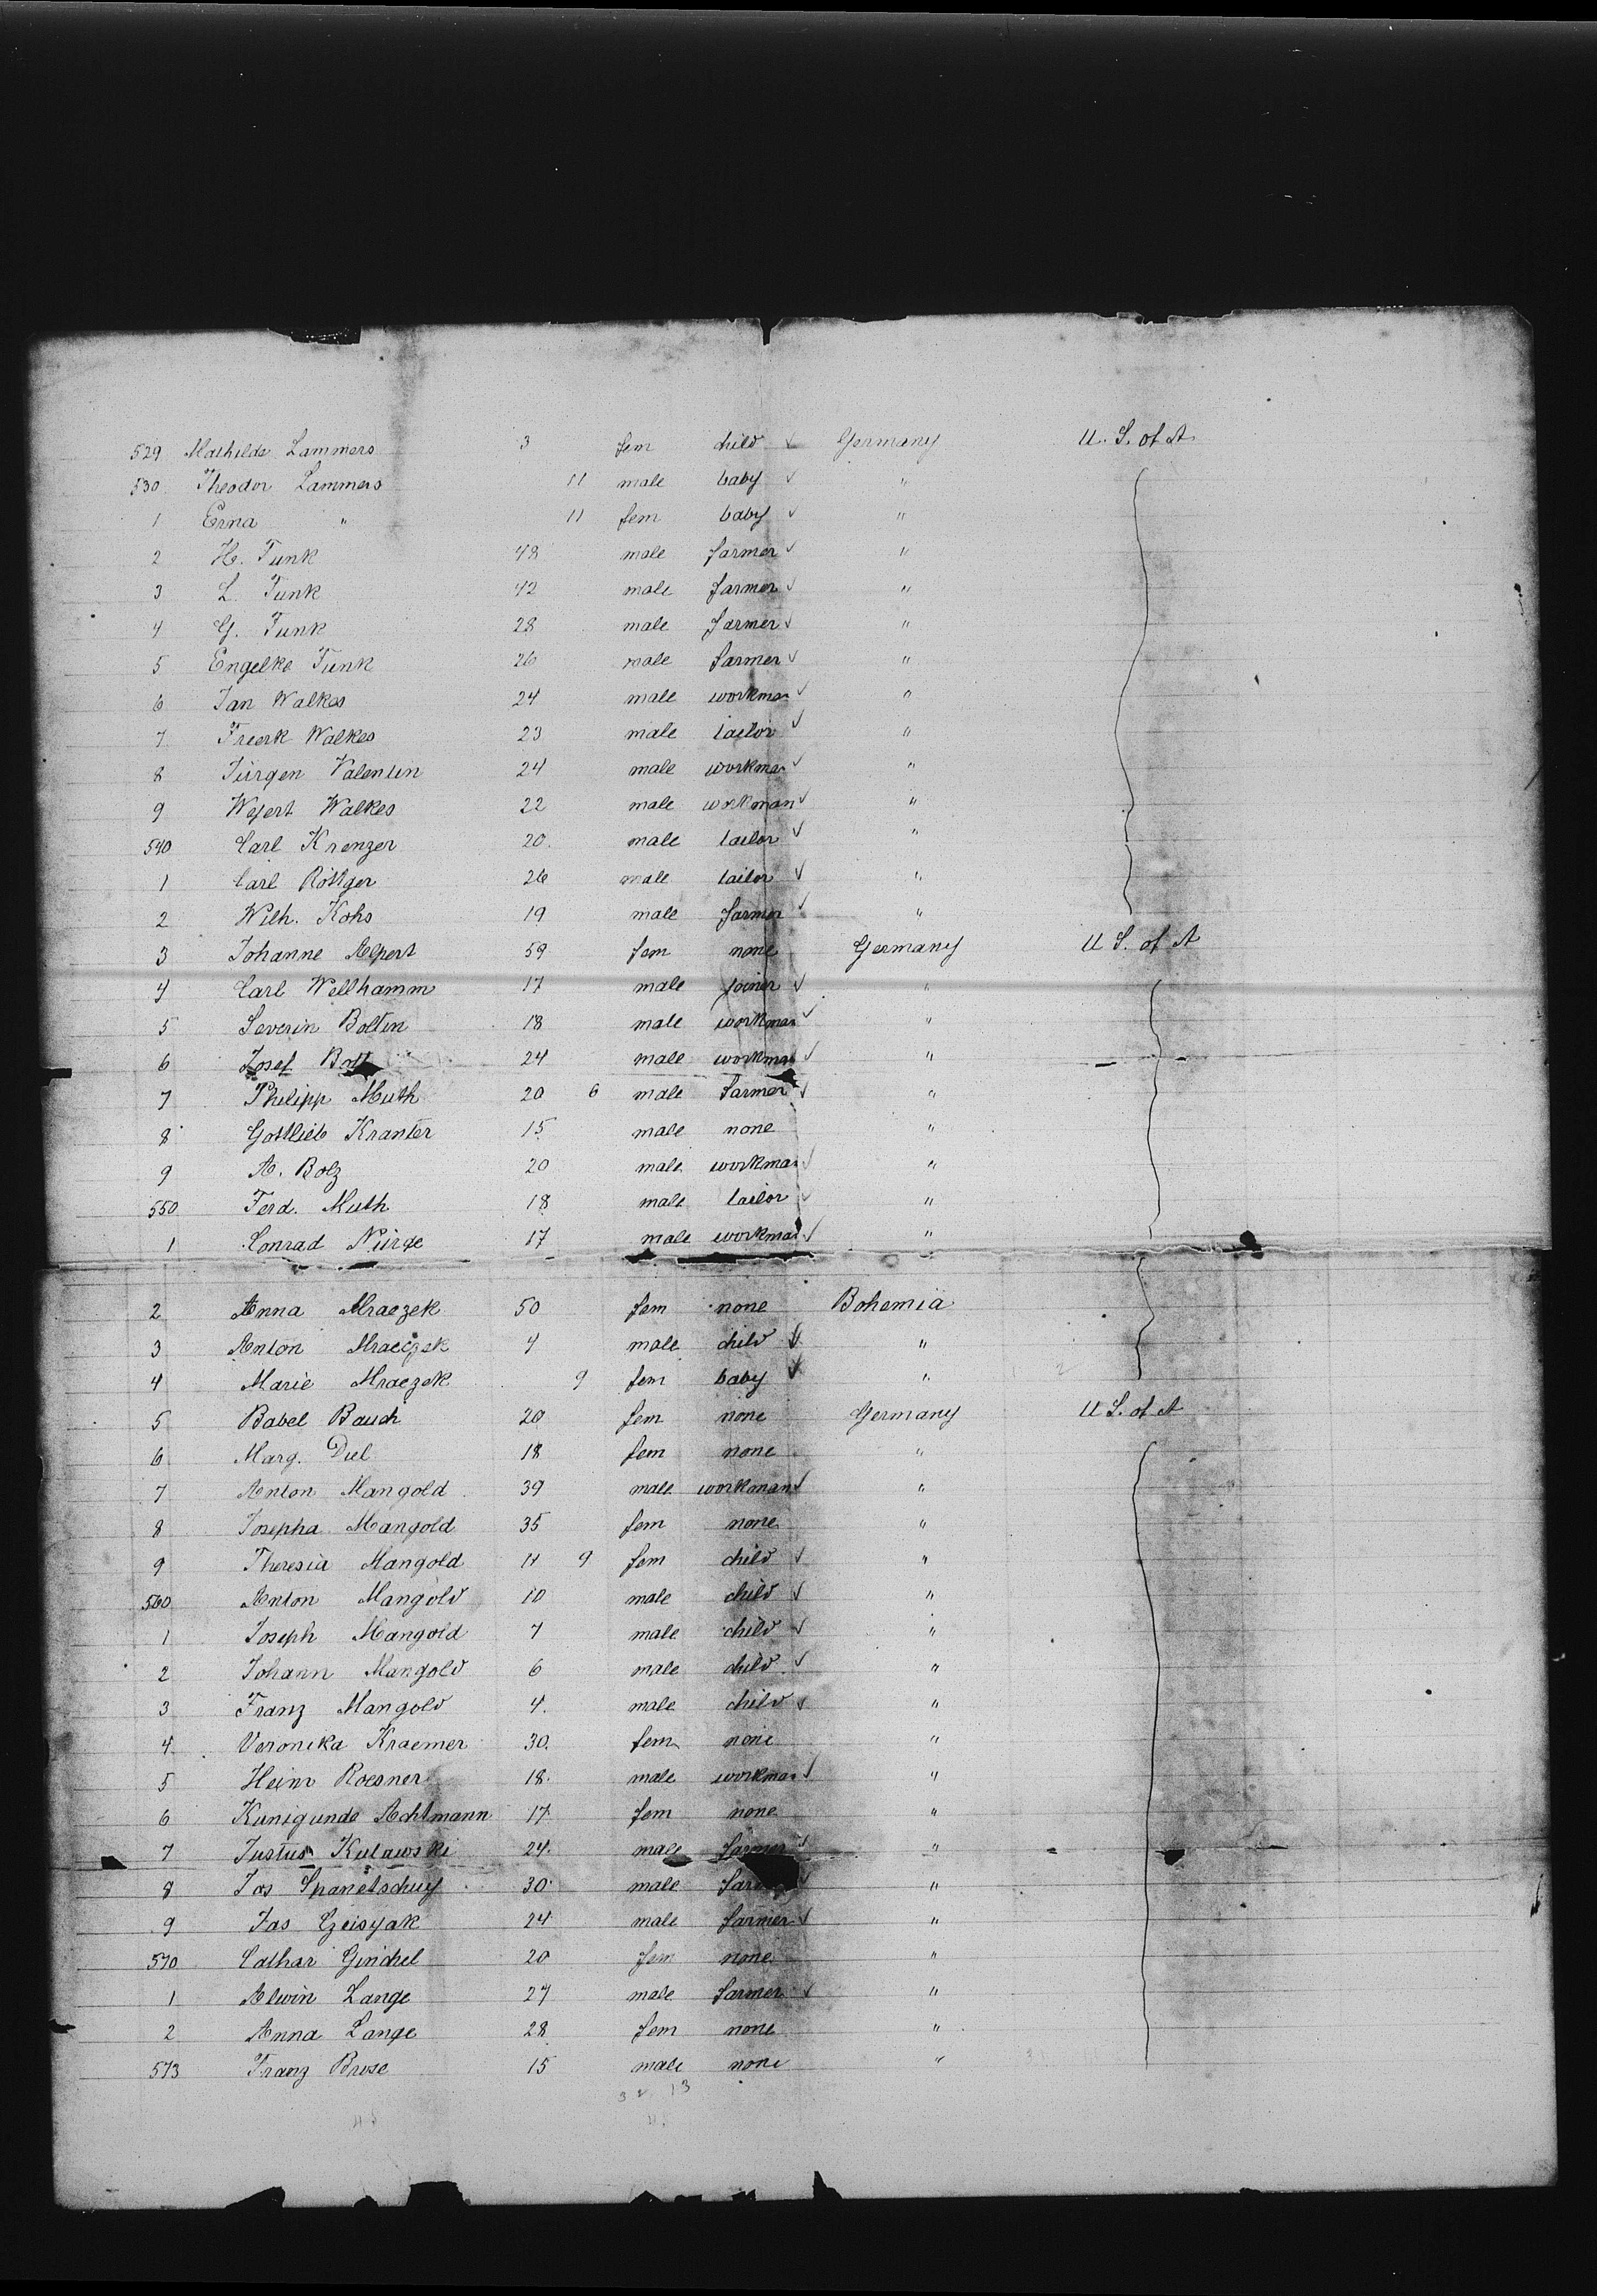 529 Mathilde Lammers 3 fem child ✓ Germany U. S. of A.
530 Theodor Lammers 11 male baby ✓ "
1 Erna " 11 fem baby ✓ "
2 H. Funk 48 male farmer ✓ "
3 L. Funk 42 male farmer ✓ "
4 G. Funk 28 male farmer ✓ "
5 Engelke Funk 26 male farmer ✓ "
6 Jan Walkes 24 male workman ✓ "
7 Freerk Walkes 23 male tailor ✓ "
8 Jürgen Valentin 24 male workman ✓ "
9 Wefert Walkes 22 male workman ✓ "
540 Carl Krenzer 20 male tailor ✓ "
1 Carl Röttger 26 male tailor ✓ "
2 Wilh. Kohs 19 male farmer ✓ "
3 Johanne Alpert 59 fem none Germany U S. of A
4 Carl Wellhamm 17 male joiner ✓ "
5 Severin Bolten 18 male workman ✓ "
6 Josef 24 male workman ✓ "
7 Philipp Muth 20 6 male farmer ✓ "
8 Gottlieb Kranter 15 male none "
9 A. Bolz 20 male workman ✓ "
550 Ferd. Muth 18 male tailor ✓ "
1 Conrad Nürge 17 male workman ✓ "
2 Anna Mraczek 50 fem none Bohemia
3 Anton Mraczek 4 male child ✓ "
4 Marie Mraczek 9 fem baby ✓ "
5 Babel Bauch 20 fem none Germany U S. of A
6 Marg. Diel 18 fem none "
7 Anton Mangold 39 male workman ✓ "
8 Josepha Mangold 35 fem none "
9 Theresia Mangold 11 9 fem child ✓ "
560 Anton Mangold 10 male child ✓ "
1 Joseph Mangold 7 male child ✓ "
2 Johann Mangold 6 male child ✓ "
3 Franz Mangold 4 male child ✓ "
4 Veronika Kraemer 30 fem none "
5 Heinr Roesner 18 male workman ✓ "
6 Kunigunde Achtmann 17 fem none "
7 Justus Kulawski 24 male farmer ✓ "
8 Jos Spanetschuy 30 male "
9 Jas Czeisyak 24 male farmer ✓ "
570 Cathar Gindhel 20 fem none "
1 Alwin Lange 27 male farmer ✓ "
2 Anna Lange 28 fem none "
573 Franz Brose 15 male none "
32 13
45 45